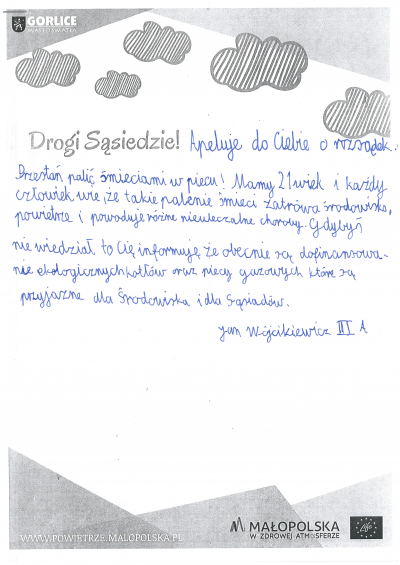 GORLICE
MIASTO ŚWIATŁA
Drogi Sąsiedzie! Apeluje do Ciebie o rozsądek.
Przestań palić śmieciami w piecu! Mamy 21 wiek i każdy
człowiek wie, że takie palenie śmieci zatruwa środowisko,
powietrze i powoduje różne nieuleczalne choroby. Gdybyś
nie wiedział to Cię informuję że obecnie są dofinansowa-
nie ekologicznych kotłów oraz piecy gazowych które są
przyjazne dla Środowiska i dla Sąsiadów.
Jan Wójcikiewicz III A
WWW.POWIETRZE.MALOPOLSKA.PL
MAŁOPOLSKA
W ZDROWEJ ATMOSFERZE
Life